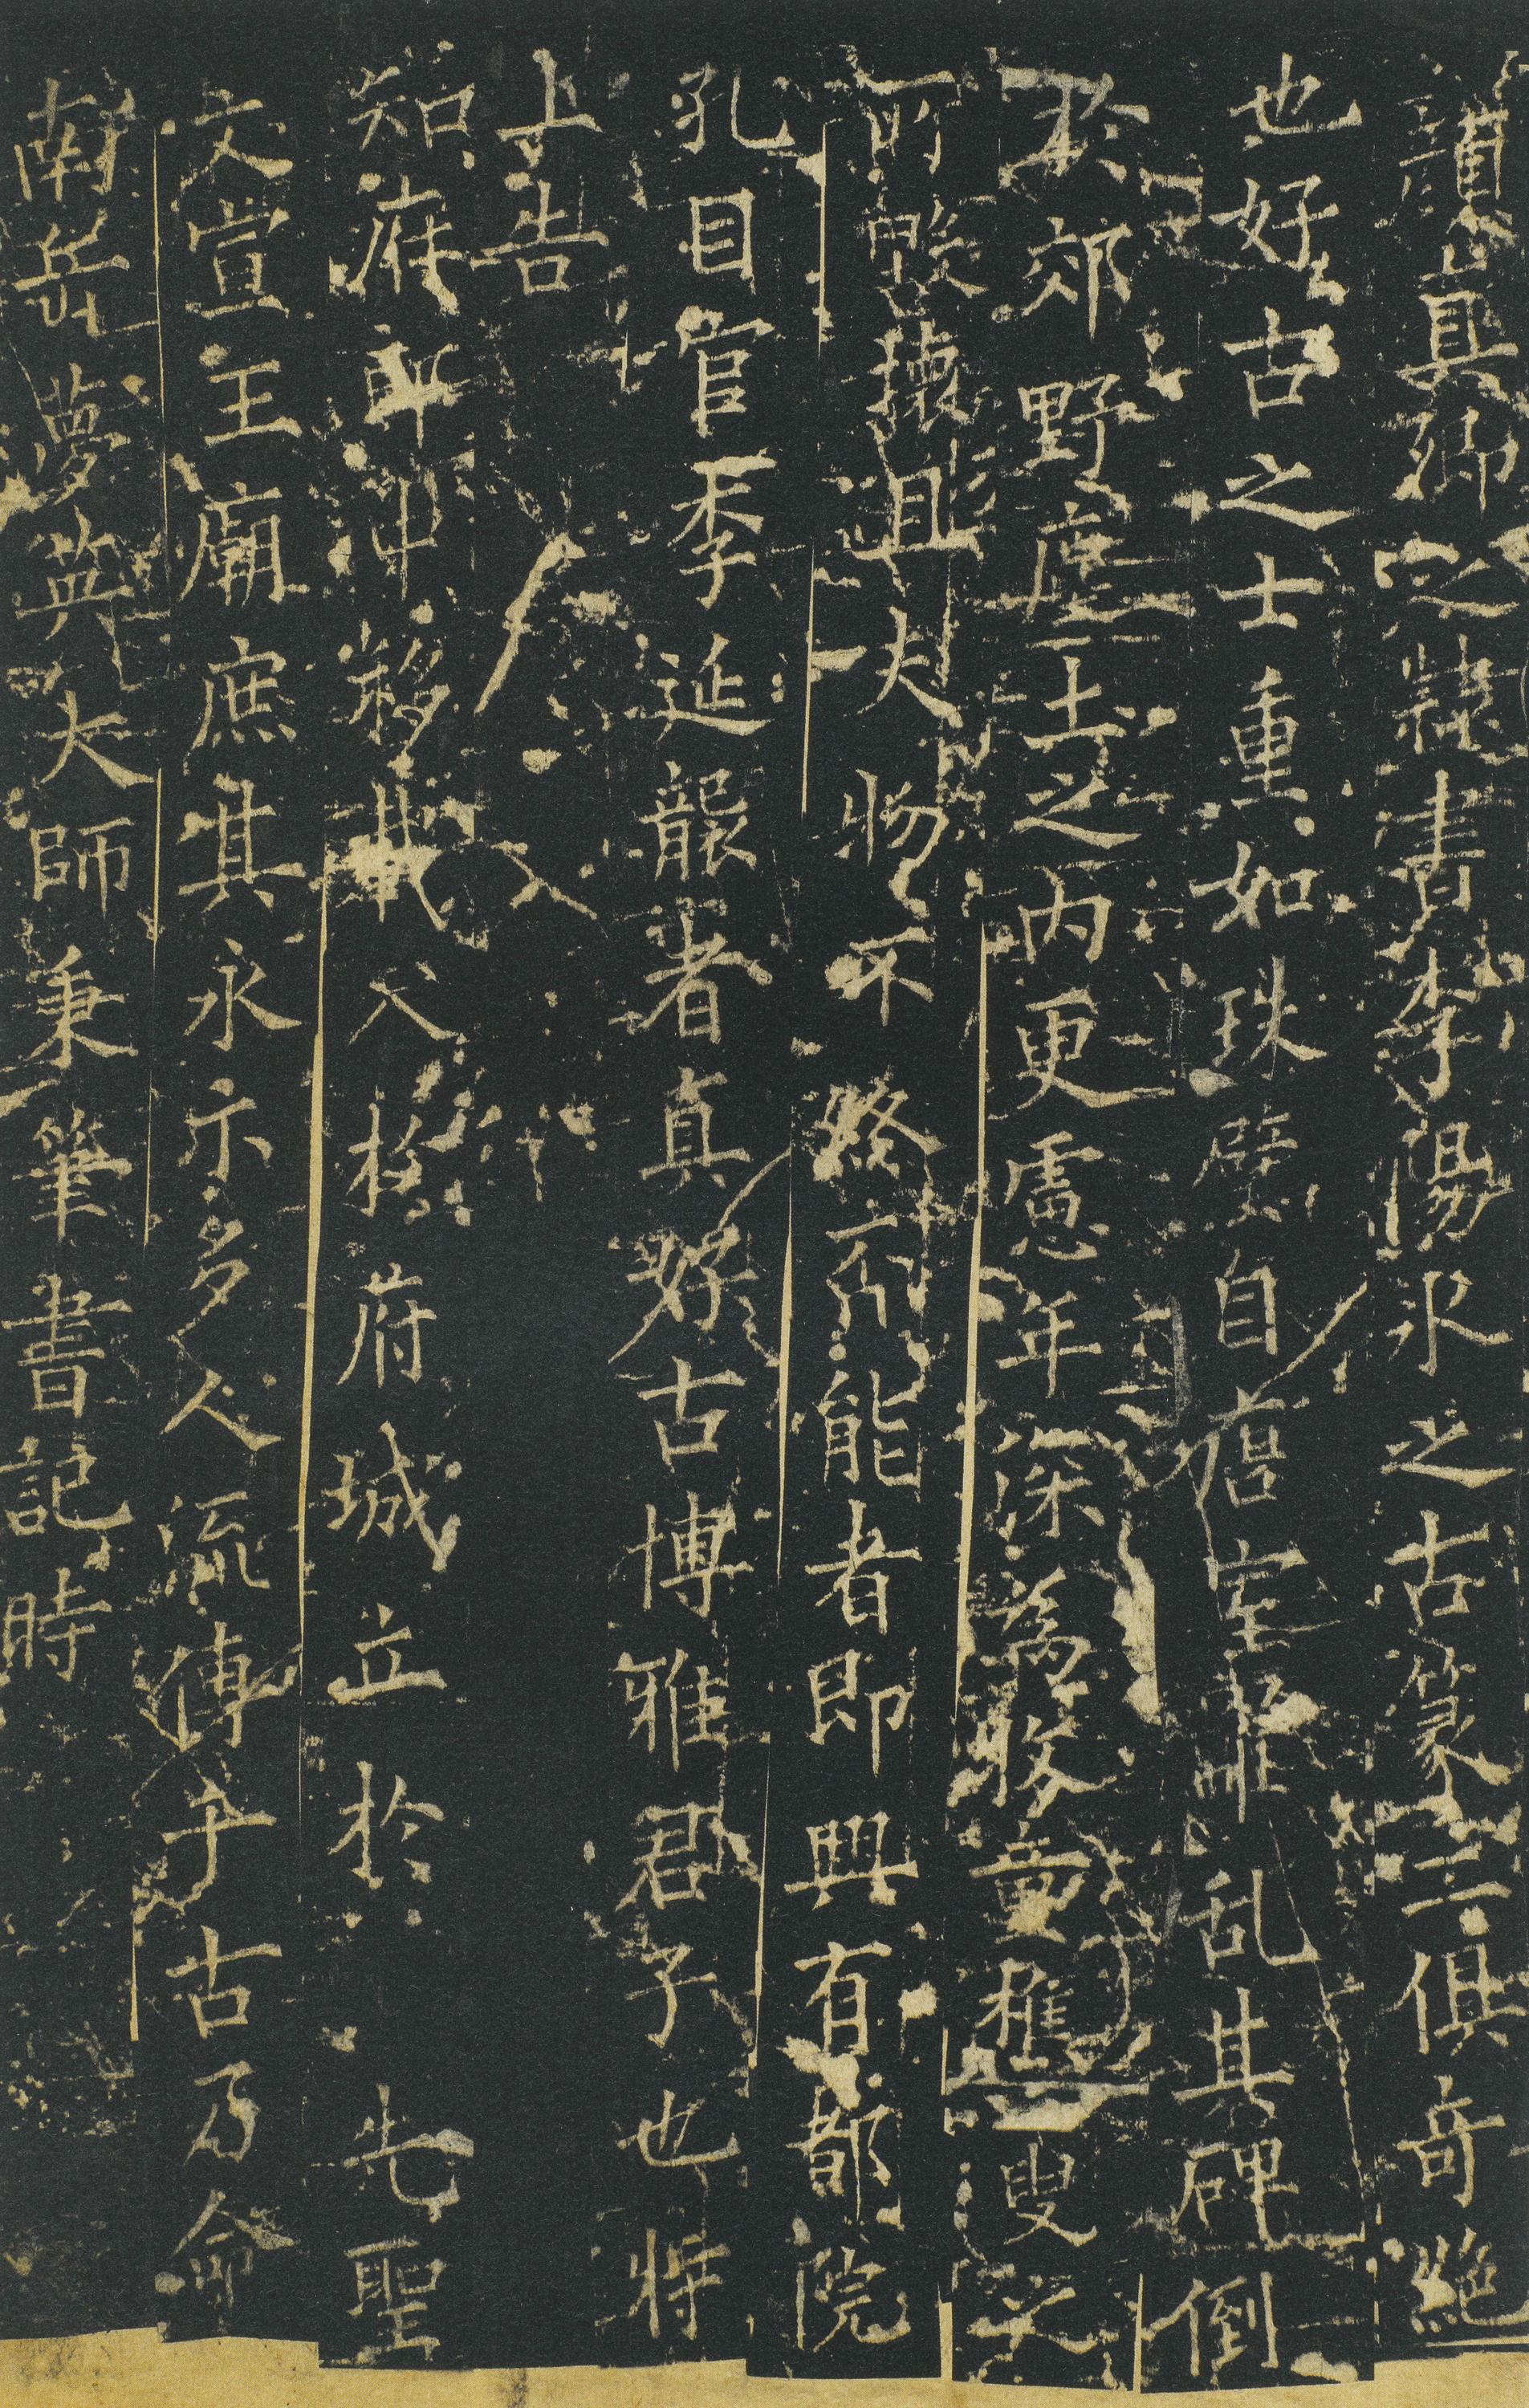 顏真卿之隸書李陽冰之古篆二俱奇絕
也好古之士重如珠璧自唐室離乱其碑倒
於郊野塵土之內更慮年深為牧童樵叟之
所毀壞且夫物不終否能者即興有都院
孔目官李延襲者真好古博雅君子也特
上告
知府郎中移載入於府城立於先聖
文宣王廟庶其永示多人流傳千古乃命
南岳夢英大師秉筆書記時